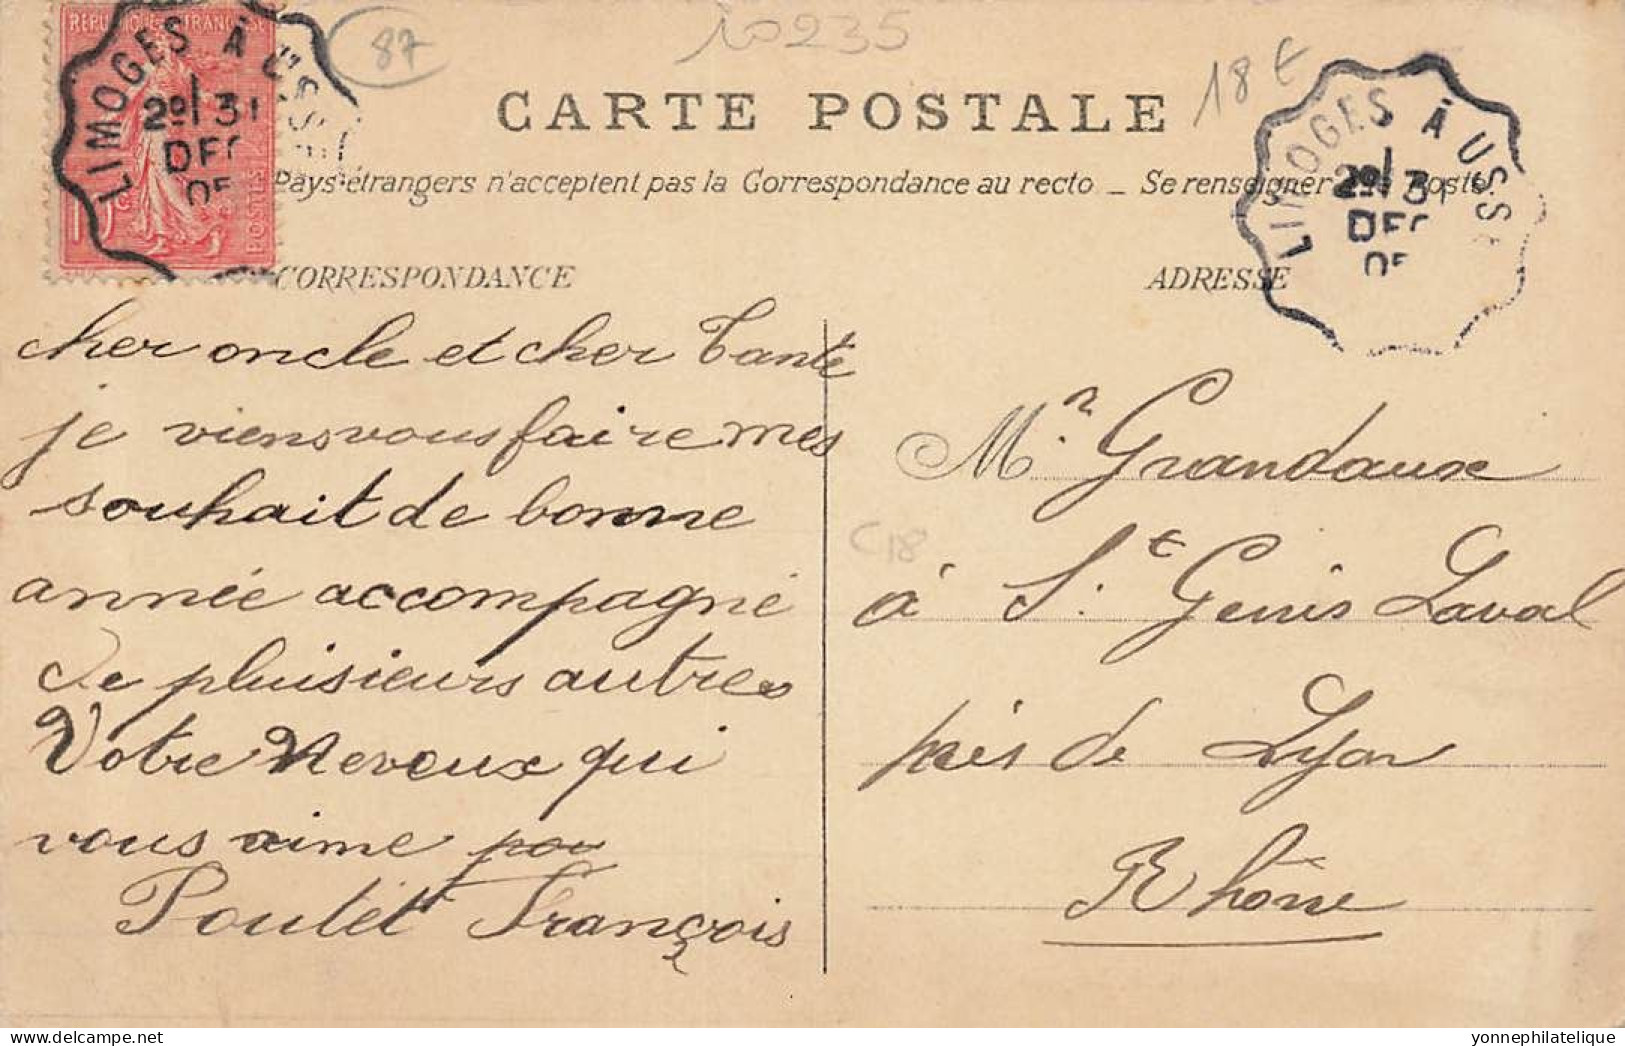 REPUBLIQUE FRANCAISE
LIMOGES À USS
2º 31
DEC
05
POSTES
87
10235
18 €
CARTE POSTALE
LIMOGES À USSE
2º 31
DEC
05
Pays étrangers n'acceptent pas la Correspondance au recto _ Se renseigner Poste.
CORRESPONDANCE
ADRESSE
cher oncle et cher Tante
je viens vous faire mes
souhait de bonne
année accompagné
de pluisieurs autres
Votre Neveux qui
vous aime
Poulet François
C18
Mr. Grandaux
à St. Genis Laval
près de Lyon
Rhône
yonnephilatelique